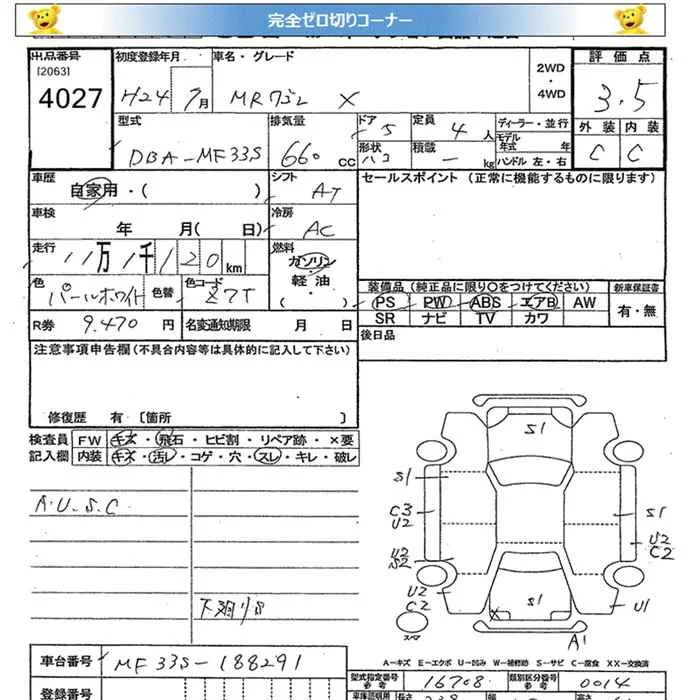 完全ゼロ切りコーナー
出品番号
[2063]
4027
初度登録年月
H24 7月
車名・グレード
MRワゴン X
2WD
・
4WD
評価点
3.5
外装 内装
C C
型式
DBA-MF33S
排気量
660 cc
ドア 5
形状 ハコ
定員 4人
積載 - kg
ディーラー・並行
モデル年式 年
ハンドル 左・右
車歴
自家用・( )
シフト
AT
セールスポイント (正常に機能するものに限ります)
車検
年 月( 日)
冷房
AC
走行
11万1千120km
燃料
ガソリン
・
軽油
( )
色
パールホワイト
色替
色コード
Z7T
装備品 (純正品に限り○をつけてください)
PS PW ABS エアB AW
SR ナビ TV カワ
新車保証書
有・無
R券 9.470 円
名変通知期限 月 日
後日品
注意事項申告欄 (不具合内容等は具体的に記入して下さい)
修復歴 有 〔箇所 〕
検査員記入欄
FW キズ・飛石・ヒビ割・リペア跡・×要
内装 キズ・汚レ・コゲ・穴・スレ・キレ・破レ
A.U.S.C
下廻りS
S1
S1
C3
U2
S1
U2
C2
U2
S2
U2
C2
S1
U1
A1
スペア
A-キズ E-エクボ U-凹み W-補修跡 S-サビ C-腐食 XX-交換済
車台番号 MF33S-188291
型式指定番号
参考
16708
類別区分番号
参考
0014
登録番号
車庫証明用
長さ